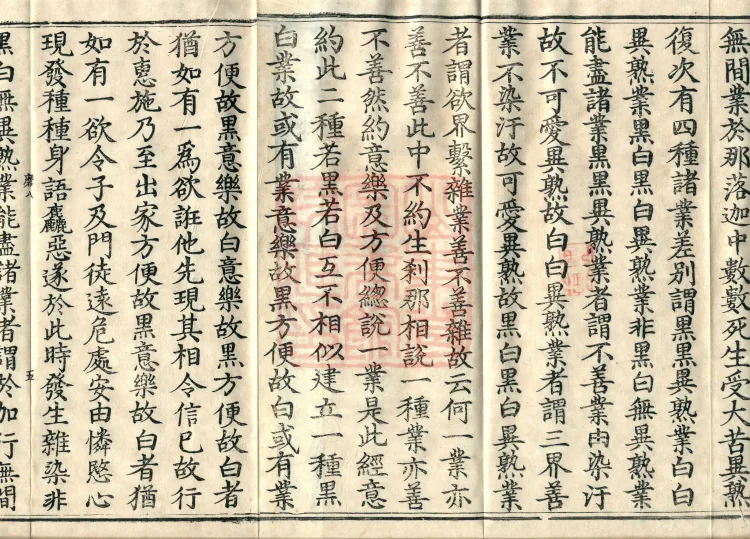 無間業於那落迦中數數死生受大苦異熟
復次有四種諸業差別謂黑黑異熟業白白
異熟業黑白黑白異熟業非黑白無異熟業
能盡諸業黑黑異熟業者謂不善業由染汙
故不可愛異熟故白白異熟業者謂三界善
業不染汙故可愛異熟故黑白黑白異熟業
者謂欲界繫雜業善不善雜故云何一業亦
善不善此中不約生刹那相說一種業亦善
不善然約意樂及方便總說一業是此經意
約此二種若黑若白互不相似建立一種黑
白業故或有業意樂故黑方便故白或有業
方便故黑意樂故白意樂故黑方便故白者
猶如有一爲欲誑他先現其相令信已故行
於惠施乃至出家方便故黑意樂故白者猶
如有一欲令子及門徒遠危處安由憐愍心
現發種種身語麤惡遂於此時發生雜染非
五
黑白無異熟業能盡諸業者謂於加行無間